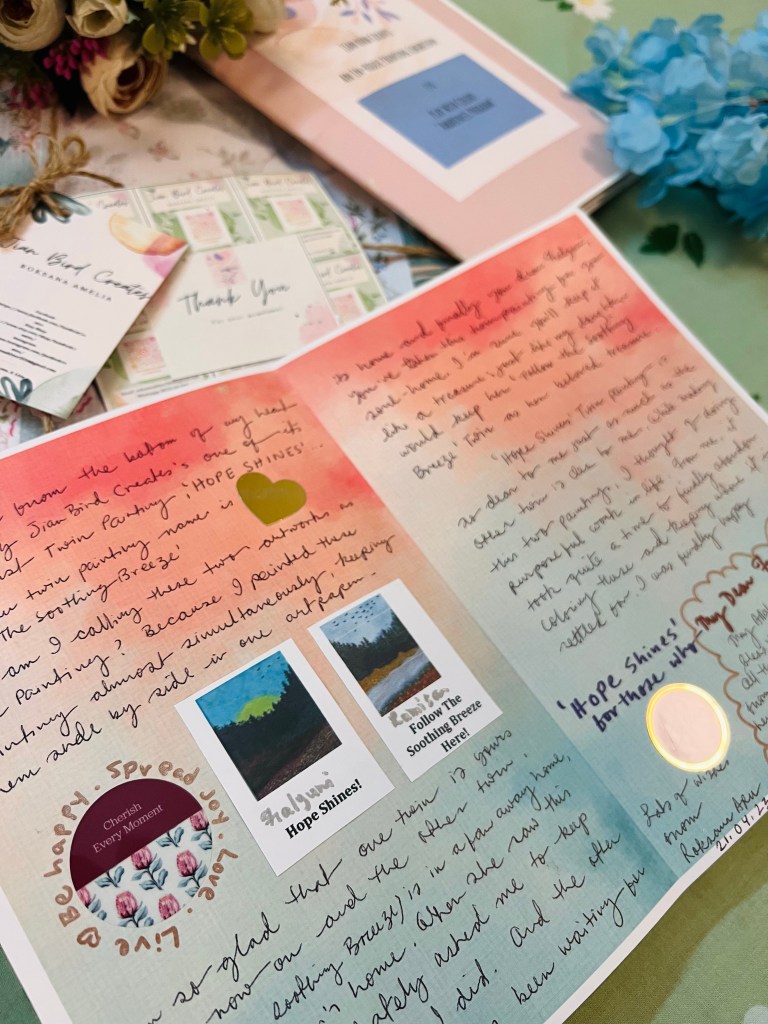 Jian Bird Creates
ROKSANA AMELIA
Jian Bird Creates
Jian Bird Creates
Thank You
from the bottom of my heart
Jian Bird Creates's one of its
Twin Painting 'HOPE SHINES'...
twin painting name is
The Soothing Breeze'
am I calling these two artworks as
Painting? Because I painted these
painting almost simultaneously, keeping
side by side in one art paper.
Hope Shines!
Follow The
Soothing Breeze
Here!
Cherish
Every Moment
Be happy. Spread Joy. Love. Live
so glad that one twin is yours
now on and the other twin,
soothing Breeze) is in a far away home,
's home. After she saw this
asked me to keep
I did. And the other
been waiting for
home and finally you dear
You've taken this home painting for your
soul-home. I'm sure you'll keep it
like a treasure just like my dear
would keep her 'Follow the Soothing
Breeze' Twin as her beloved treasure.
'Hope Shines' Twin Painting is
as dear to me just as much as the
other twin is dear to me. While making
this two paintings, I thought of doing
purposeful work in life. For me, it
took quite a time to finally abandon
coloring these and keeping where it
settled on. I was finally happy
'Hope Shines'
for those who
My Dear
Lots of wishes
from
21.04.23